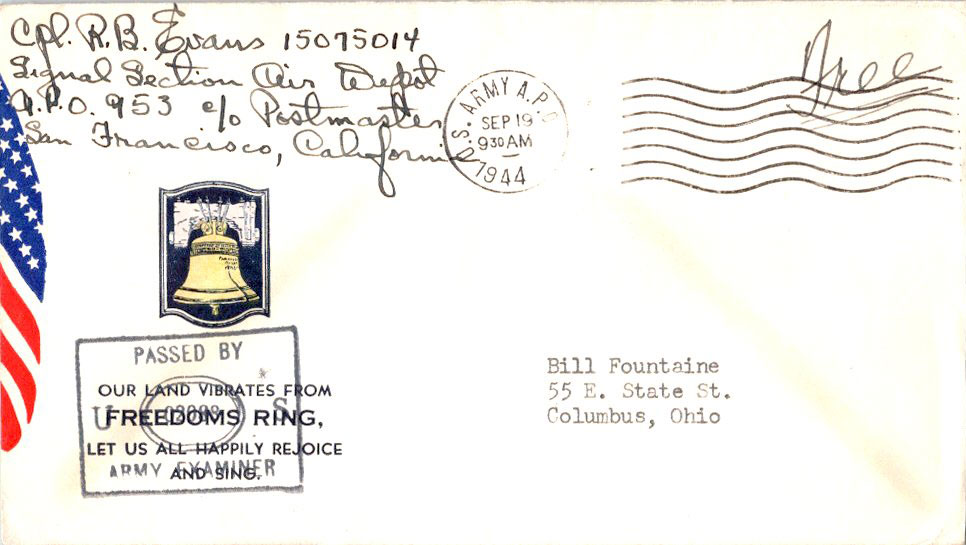 Cpl. R.B. Evans 15075014
Signal Section Air Depot
A.P.O. 953 c/o Postmaster
San Francisco, California
U.S. ARMY A.P.O.
SEP 19
930 AM
1944
Free
PASSED BY
U S
ARMY EXAMINER
OUR LAND VIBRATES FROM
FREEDOMS RING,
LET US ALL HAPPILY REJOICE
AND SING.
Bill Fountaine
55 E. State St.
Columbus, Ohio